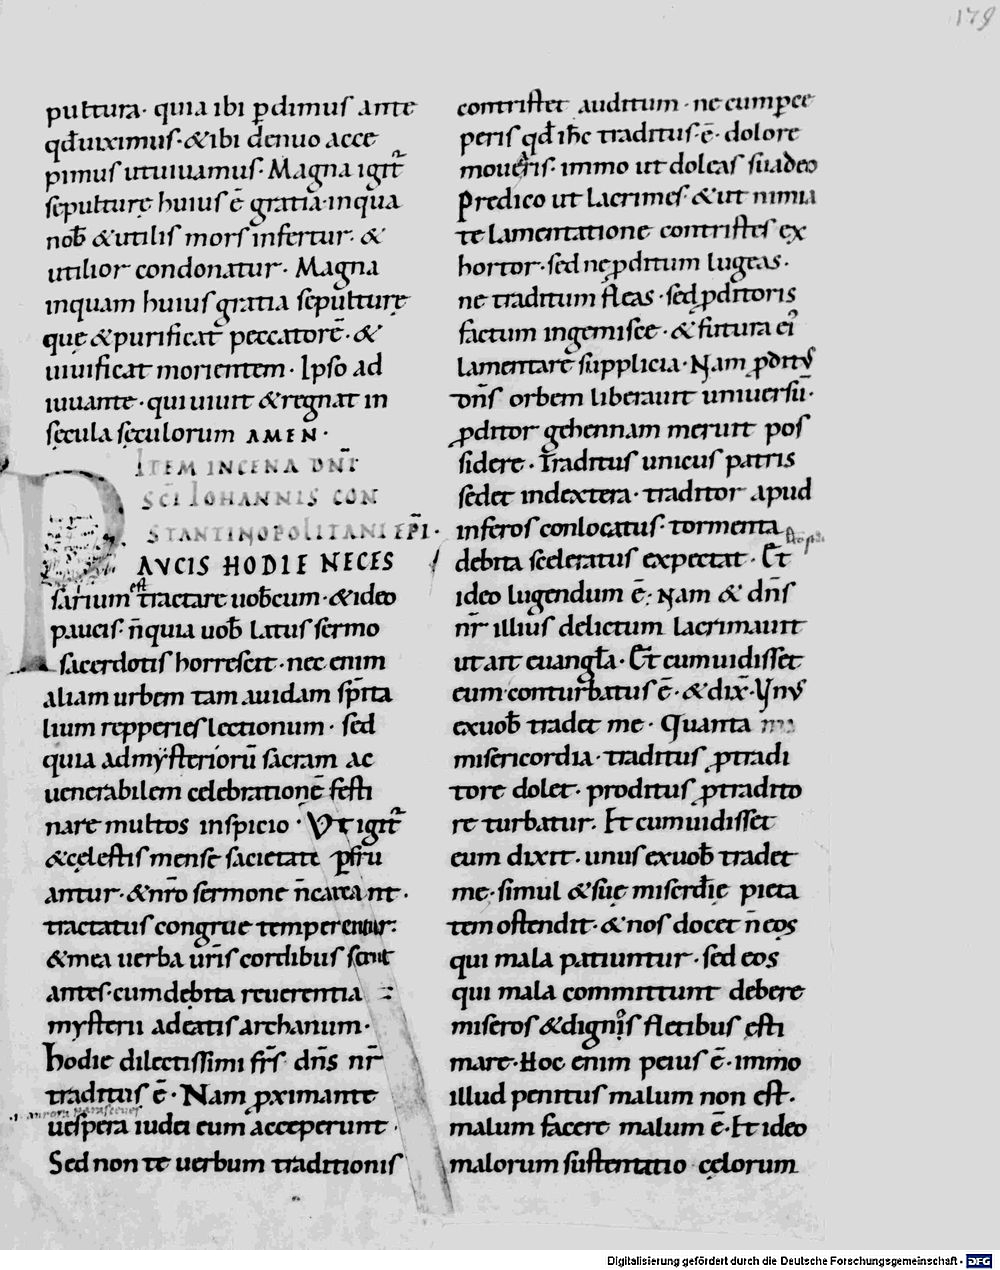 179
pultura· quia ibi p̄dimus ante
qđ uiximus· & ibi denuo acce
pimus ut uiuamus· Magna igit̄
sepulturę huius ē gratia· in qua
nob̄ & utilis mors infertur· &
utilior condonatur· Magna
inquam huius gratia sepulturę
quę & purificat peccatorē· &
uiuificat morientem· Ipso ad
iuuante· qui uiuit & regnat in
sęcula sęculorum AMEN·
ITEM IN CENA DNI
SCI IOHANNIS CON
STANTINOPOLITANI EPI·
PAUCIS HODIE NECES
sarium est tractare uobcum· & ideo
paucis· n̄ quia uob̄ latus sermo
sacerdotis horrescit· nec enim
aliam urbem tam auidam sp̄ita
lium repperies lectionum· sed
quia ad mysteriorū sacram ac
uenerabilem celebrationē festi
nare multos inspicio· Vt igit̄
& cęlestis mense sacietate p̄fru
antur· & nr̄o sermone n̄ careant·
tractatus congrue temperentur·
& mea uerba ur̄is cordibus
antes· cum debita reuerentia
mysterii adeatis archanum·
hodie dilectissimi fr̄s· dn̄s nr̄
traditus ē· Nam p̱ximante
aurora parasceues
uespera iudei eum acceperunt·
Sed non te uerbum traditionis
contristet auditum· ne cum p̱ce
peris qđ ih̄c traditus ē· dolore
moueris· immo ut doleas suadeo
Predico ut lacrimes· & ut nimia
te lamentatione contristes ex
hortor· sed ne p̱ditum lugeas·
ne traditum fleas· sed p̱ditoris
factum ingemisce· & futura ei'
lamentare supplicia· Nam p̱dit'
dn̄s orbem liberauit uniuersū·
p̱ditor gehennam meruit pos
sidere· Traditus unicus patris
sedet in dextera· traditor apud
inferos conlocatus· tormenta
debita sceleratus expectat· Et
ideo lugendum ē· Nam & dn̄s
nr̄ illius delictum lacrimauit
ut ait euangl̄a· Et cum uidisset
eum conturbatus ē· & dix̄· Vn'
ex uob̄ tradet me· Quanta
misericordia· traditus p̱ tradi
tore dolet· proditus p̱ tradito
re turbatur· Et cum uidisset
eum dixit· unus ex uob̄ tradet
me· simul & suę miserdię pieta
tem ostendit· & nos docet n̄ eos
qui mala patiuntur· sed eos
qui mala committunt debere
miseros & dignis fletibus ęsti
mare· Hoc enim peius ē· immo
illud penitus malum non est·
malum facere malum ē· Et ideo
malorum sustentatio cęlorum
Digitalisierung gefördert durch die Deutsche Forschungsgemeinschaft - DFG